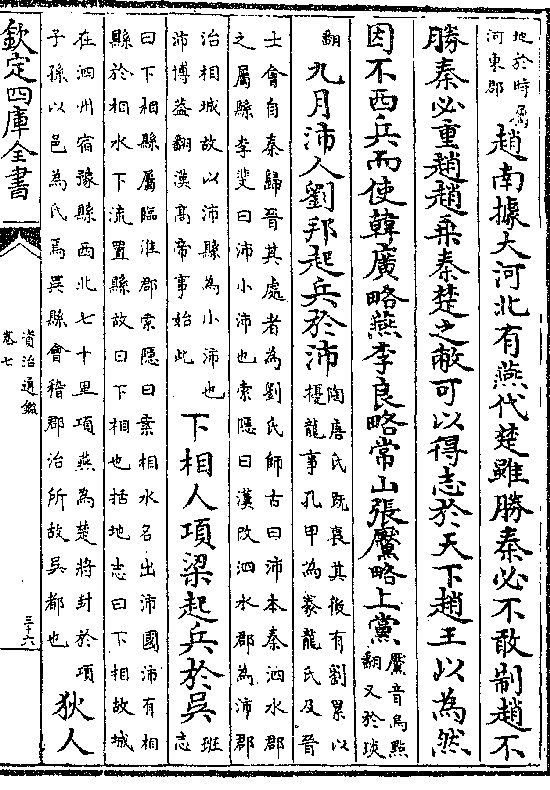 地於時屬
河東郡
趙南據大河北有燕代楚雖勝秦必不敢制趙不
勝秦必重趙趙乗秦楚之敝可以得志於天下趙王以為然
因不西兵而使韓廣略燕李良略常山張黶略上黨
黶音烏㸃
翻又於琰
翻
九月沛人劉邦起兵於沛
陶唐氏既衰其後有劉累以
擾龍事孔甲為豢龍氏及晉
士會自秦歸晉其處者為劉氏師古曰沛本秦泗水郡
之屬縣李斐曰沛小沛也索隱曰漢改泗水郡為沛郡
治相城故以沛縣為小沛也
沛博蓋翻漢高帝事始此
下相人項梁起兵於吳
班
志
曰下相縣屬臨淮郡索隱曰案相水名出沛國沛有相
縣於相水下流置縣故曰下相也括地志曰下相故城
在泗州宿豫縣西北七十里項燕為楚將封於項
子孫以邑為氏焉吳縣會稽郡治所故吳都也
狄人
欽定四庫全書
資治通鑑
卷七
三十六